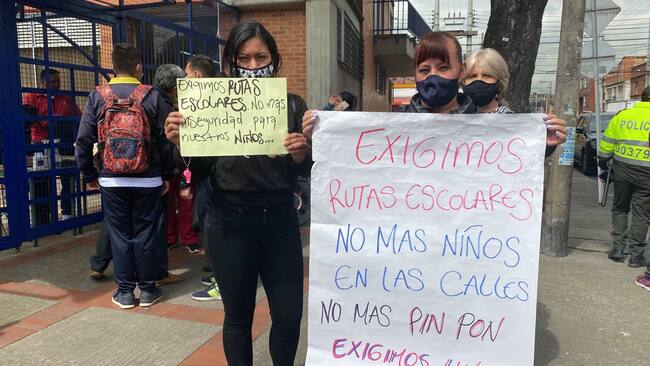 Exigimos RUTAS
ESCOLARES, No mas
inseguridad para
nuestros NIÑOS...
EXIGIMOS
RUTAS ESCOLARES
NO MAS NIÑOS
EN LAS CALLES
NO MAS PIN PON
EXIGIMOS
POLIC